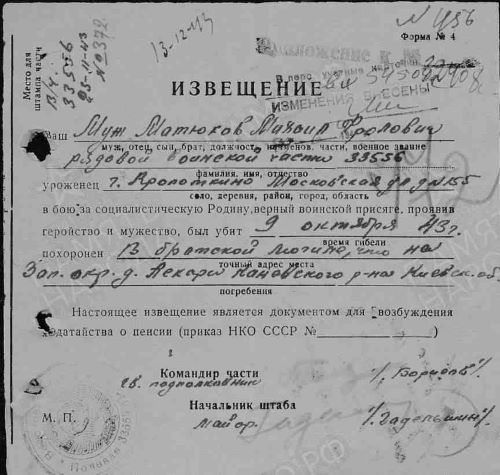 № 456
13-12-43
Форма № 4
Место для
штампа части
в/ч
33556
25-11-43
№ 372
В перс. учетные карточки
ИЗМЕНЕНИЯ ВНЕСЕНЫ
ИЗВЕЩЕНИЕ
Ваш Муж Матюков Михаил Фролович
муж, отец, сын, брат, должность, наименов. части, военное звание
рядовой воинской части 33556
фамилия, имя, отчество
уроженец г. Кропоткино Московская
село, деревня, район, город, область
в бою за социалистическую Родину, верный воинской присяге, проявив
геройство и мужество, был убит 9 октября 43 г.
время гибели
похоронен В братской могиле, что на
точный адрес места
Зап. окр. д. Пекари Каневского р-на Киевск. об.
погребения
Настоящее извещение является документом для возбуждения
ходатайства о пенсии (приказ НКО СССР №)
Командир части
гв. подполковник /Борисов/
Начальник штаба
М. П. майор